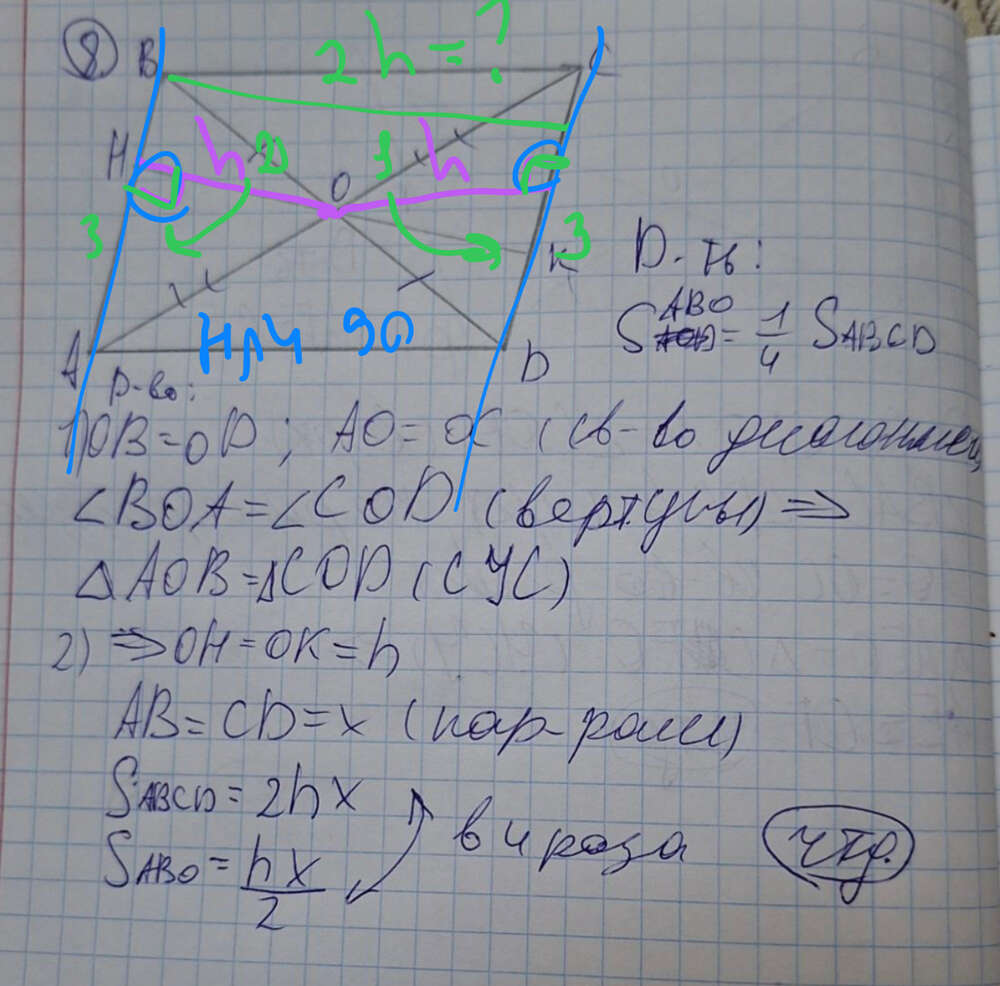 8.
B
C
2h = ?
H
h
h
2
1
O
3
3
K
A
D
НЛЧ 90
D-ть:
S ABO = 1/4 S ABCD
D-во:
1) OB = OD; AO = OC (св-во диагоналей
∠BOA = ∠COD (верт. углы) ⇒
△AOB = △COD (СУС)
2) ⇒ OH = OK = h
AB = CD = x (пар-рамм)
S ABCD = 2hx
в 4 раза
чтд.
S ABO = hx/2